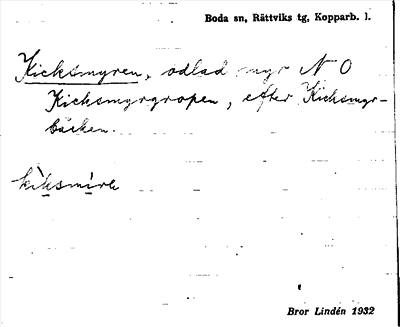 Boda sn, Rättviks tg, Kopparb. l.
Kicksmyren, odlad myr N O
Kicksmyrgropen, efter Kicksmyr-
bäcken.
kìksmìrɐ
Bror Lindén 1932